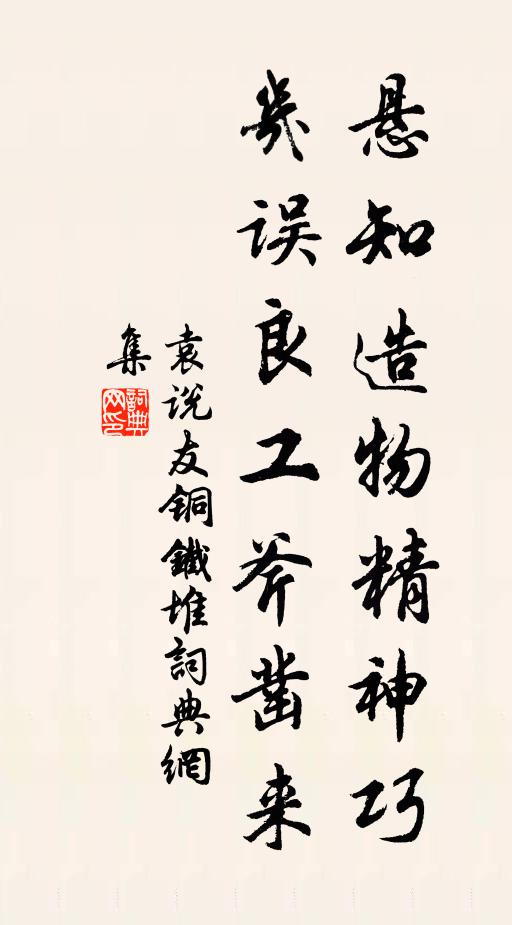 悬知造物精神巧
几误良工斧凿来
袁说友銅鐵堆詞典網
集
詞典网印